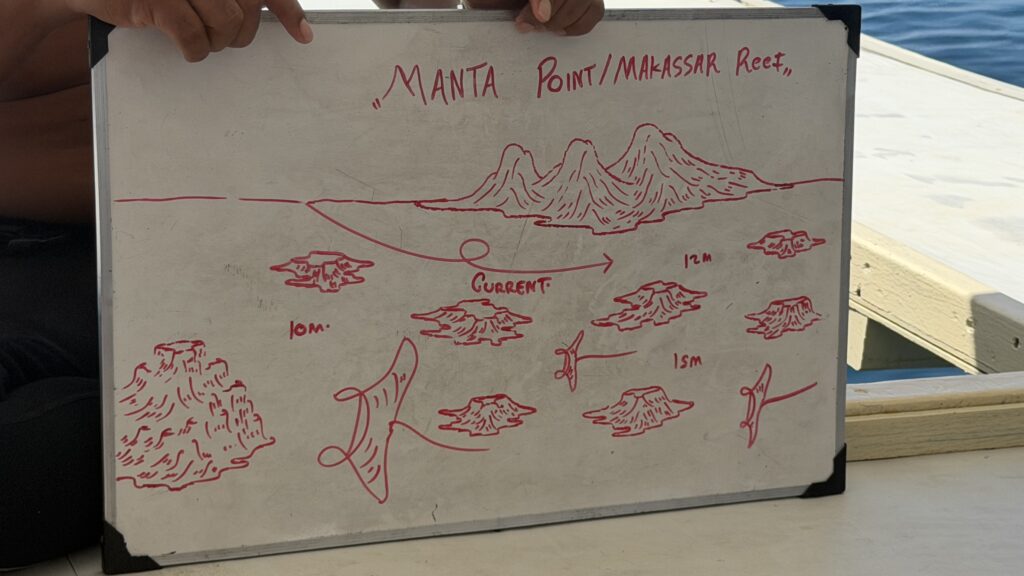 "MANTA POINT/MAKASSAR Reef"
12m
CURRENT
10m.
15m